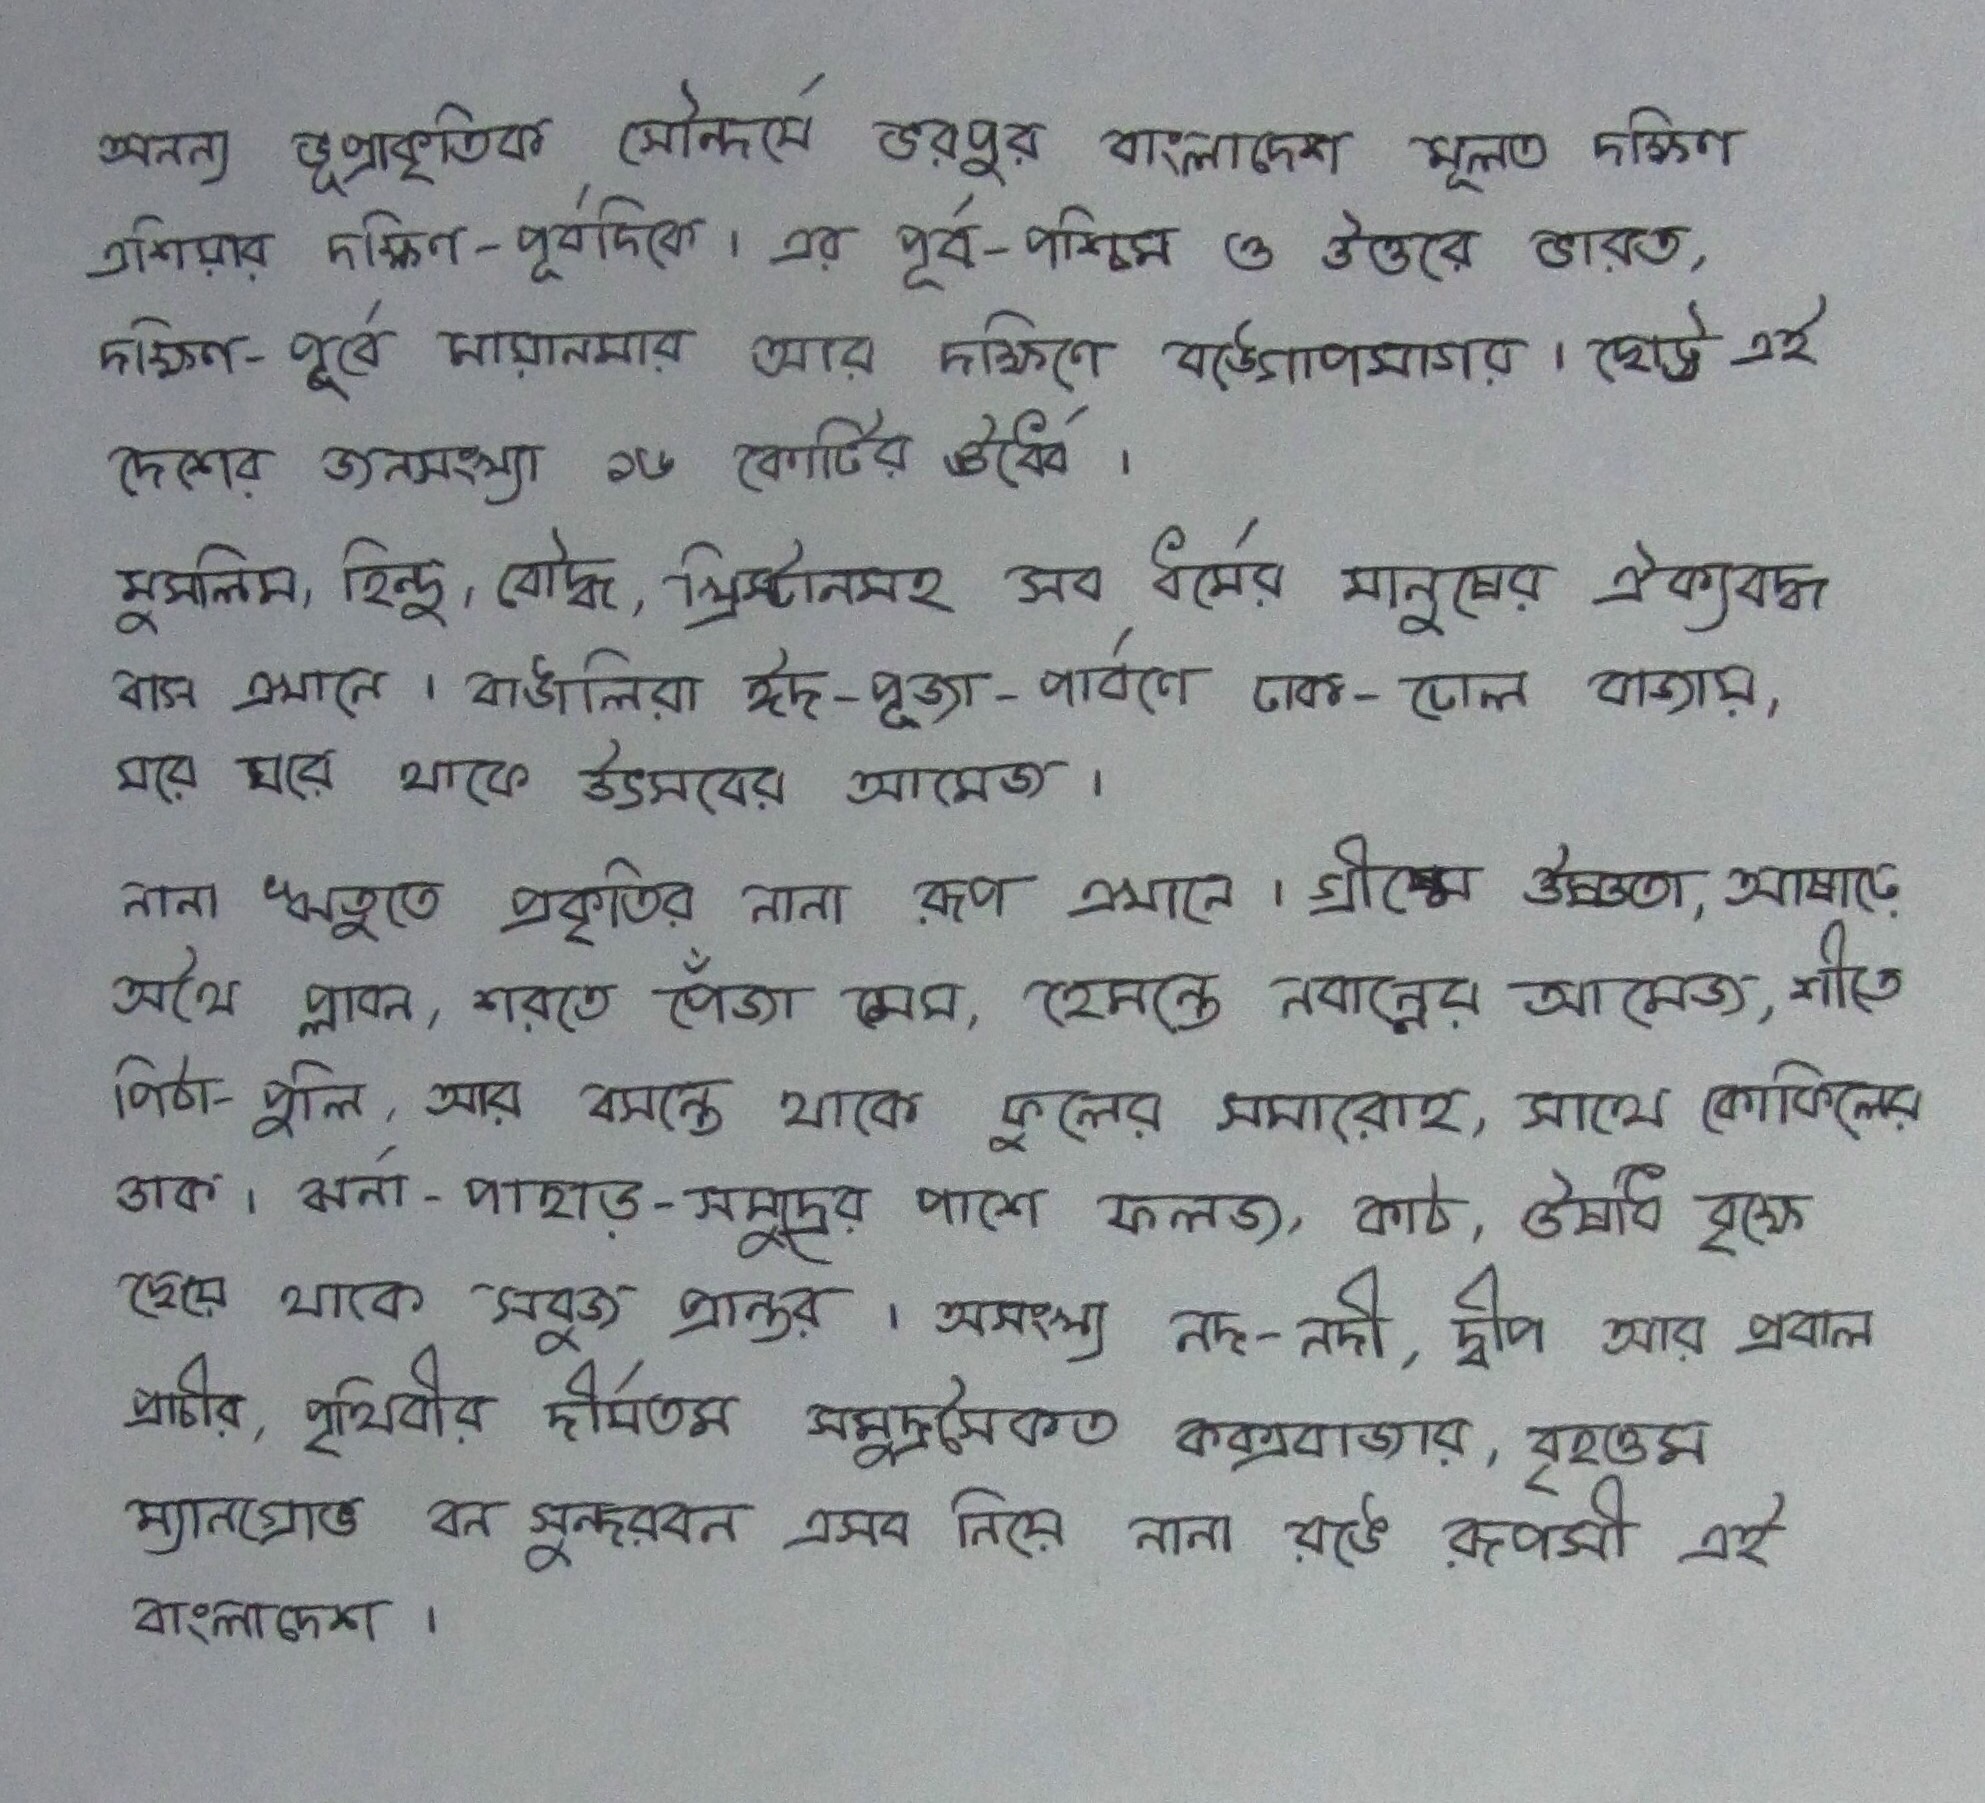 অনন্য ভূপ্রাকৃতিক সৌন্দর্যে ভরপুর বাংলাদেশ মূলত দক্ষিণ
এশিয়ার দক্ষিণ-পূর্বদিকে। এর পূর্ব-পশ্চিম ও উত্তরে ভারত,
দক্ষিণ-পূর্বে মায়ানমার আর দক্ষিণে বঙ্গোপসাগর। ছোট্ট এই
দেশের জনসংখ্যা ১৬ কোটির ঊর্ধ্বে।
মুসলিম, হিন্দু, বৌদ্ধ, খ্রিস্টানসহ সব ধর্মের মানুষের ঐক্যবদ্ধ
বাস এখানে। বাঙালিরা ঈদ-পূজা-পার্বণে ঢাক-ঢোল বাজায়,
ঘরে ঘরে থাকে উৎসবের আমেজ।
নানা ঋতুতে প্রকৃতির নানা রূপ এখানে। গ্রীষ্মে উষ্ণতা, আষাঢ়ে
অথৈ প্লাবন, শরতে পেঁজা মেঘ, হেমন্তে নবান্নের আমেজ, শীতে
পিঠা-পুলি, আর বসন্তে থাকে ফুলের সমারোহ, সাথে কোকিলের
ডাক। ঝর্না-পাহাড়-সমুদ্রের পাশে ফলজ, কাঠ, ঔষধি বৃক্ষে
ছেয়ে থাকে সবুজ প্রান্তর। অসংখ্য নদ-নদী, দ্বীপ আর প্রবাল
প্রাচীর, পৃথিবীর দীর্ঘতম সমুদ্রসৈকত কক্সবাজার, বৃহত্তম
ম্যানগ্রোভ বন সুন্দরবন এসব নিয়ে নানা রঙে রূপসী এই
বাংলাদেশ।